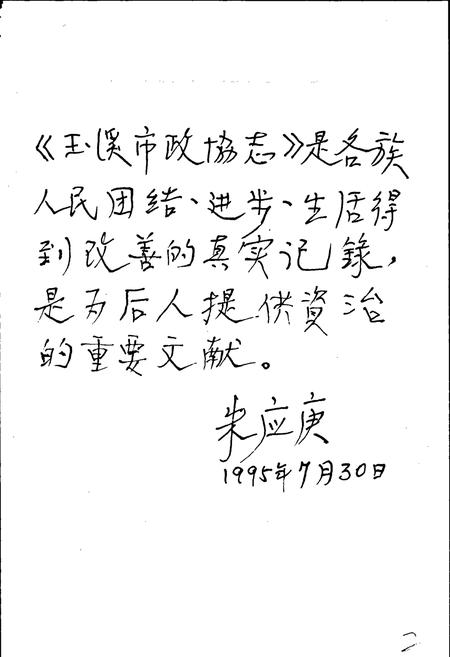 《玉溪市政協志》是各族
人民团结、进步、生活得
到改善的真实记録，
是为后人提供資治
的重要文献。
朱应庚
1995年7月30日
二